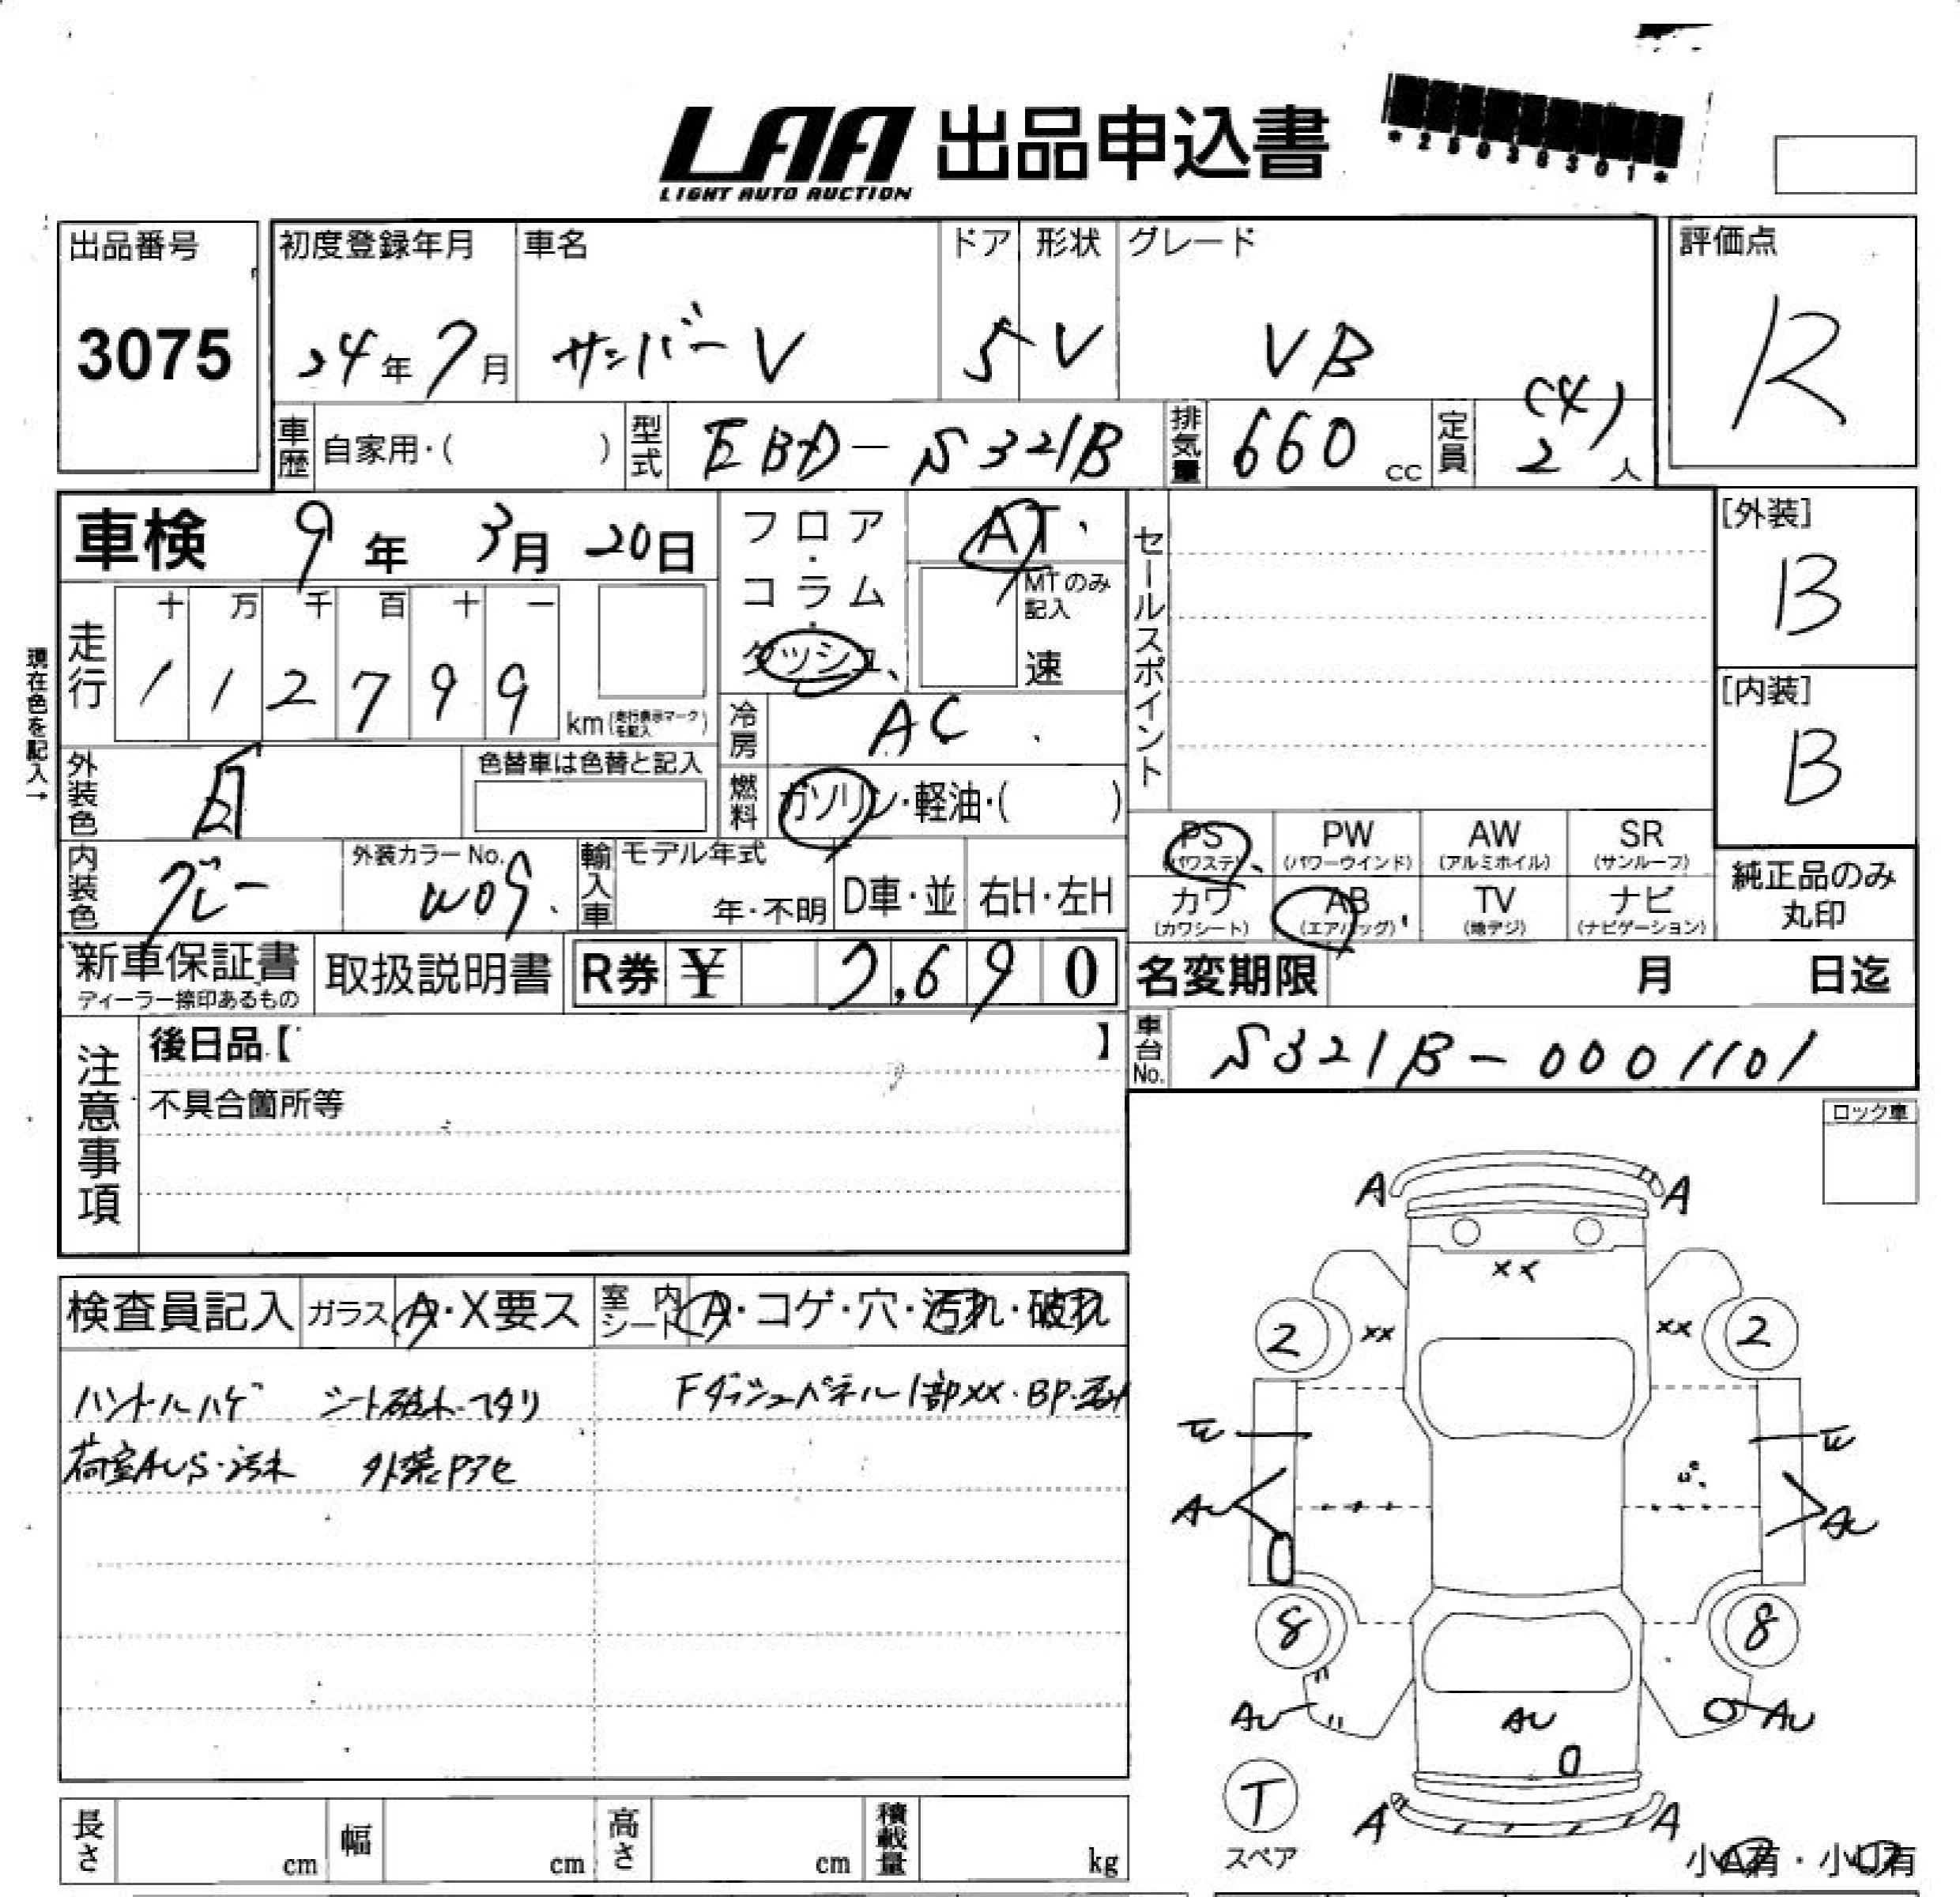 LAA 出品申込書
LIGHT AUTO AUCTION
*25036301*
出品番号 初度登録年月 車名 ドア 形状 グレード 評価点
3075 24年7月 サンバーV 5 V VB R
車歴 自家用・( ) 型式 EBD-S321B 排気量 660 cc 定員 (4) 2人
車検 9年 3月 20日 フロア・コラム・ダッシュ AT
MTのみ記入 速
セールスポイント
[外装]
B
現在色を記入→
走行 十 万 千 百 十 一
1 1 2 7 9 9 km (走行表示マークを記入)
[内装]
B
冷房 AC
外装色 白 色替車は色替と記入 燃料 ガソリン・軽油・( )
内装色 グレー 外装カラーNo. W09 輸入車 モデル年式 年・不明 D車・並 右H・左H
PS (パワステ) PW (パワーウインド) AW (アルミホイル) SR (サンルーフ)
カワ (カワシート) AB (エアバッグ) TV (地デジ) ナビ (ナビゲーション)
純正品のみ
丸印
新車保証書 ディーラー捺印あるもの 取扱説明書 R券 ¥ 7,690 名変期限 月 日迄
車台No. S321B-0001101
注意事項
後日品【 】
不具合箇所等
ロック車
検査員記入 ガラス A・X要ス 室内シート A・コゲ・穴・汚れ・破れ
ハンドルハゲ シート破れ・ヘタリ Fダッシュパネル1部XX・BP・歪み
荷室AUS・汚れ 外装
A A
XX
2 XX XX 2
E E
AU AU
8 8
AU AU AU
T
スペア
A A
小A有・小U有
長さ cm 幅 cm 高さ cm 積載量 kg